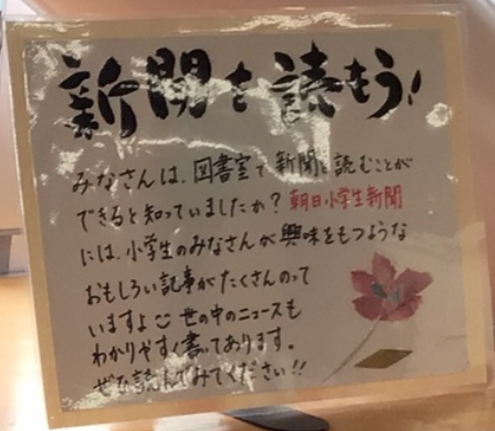 新聞を読もう!
みなさんは、図書室で新聞を読むことが
できると知っていましたか？朝日小学生新聞
には、小学生のみなさんが興味をもつような
おもしろい記事がたくさんのって
いますよ 世の中のニュースも
わかりやすく書いてあります。
ぜひ読んでみてください!!